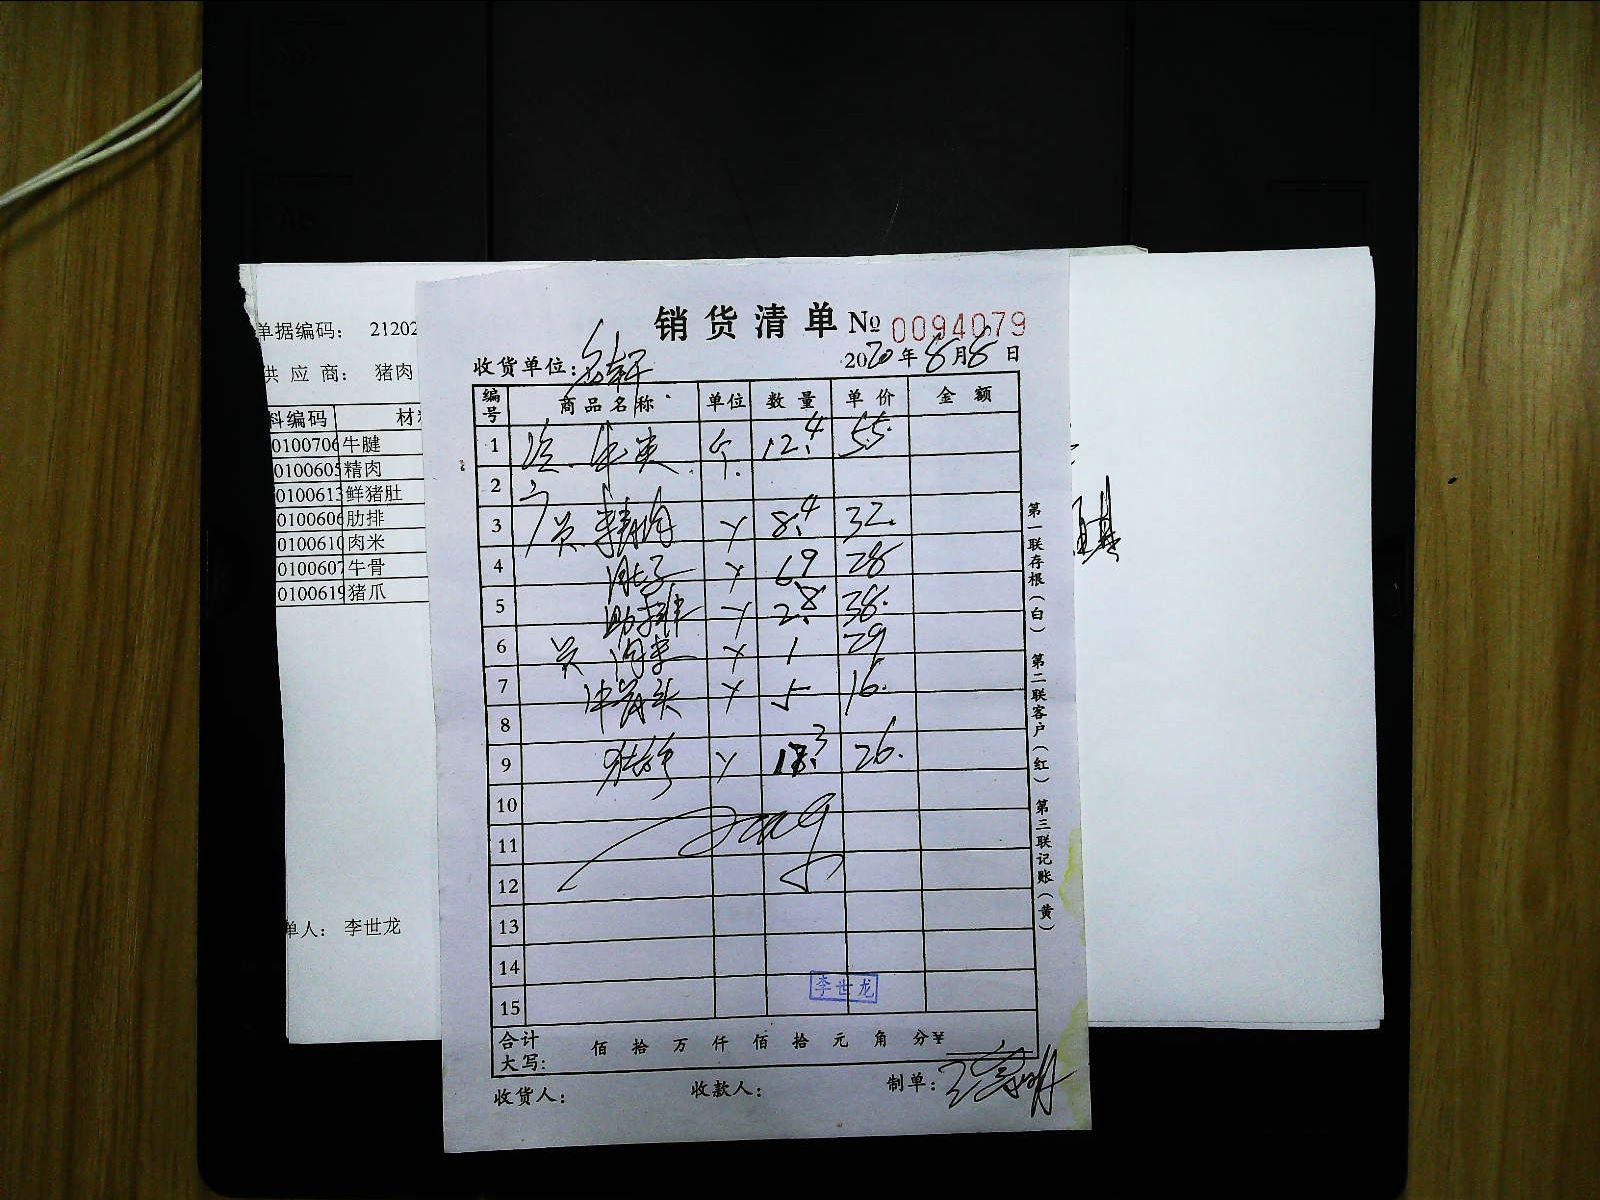 销货清单 № 0094079
收货单位:
2020年8月8日
编号 商品名称 单位 数量 单价 金额
1 12.4 55.
2
3 精肉 8.4 32.
4 肚子 69 28
5 肋排 2.8 38.
6 肉米 1 29
7 牛骨头 5 16.
8
9 18.3 26.
10
11
12
13
14
15
李世龙
合计大写: 佰 拾 万 仟 佰 拾 元 角 分¥
收货人: 收款人: 制单:
第一联存根(白) 第二联客户(红) 第三联记账(黄)
单据编码: 21202
供应商: 猪肉
料编码 材
0100706 牛腱
0100605 精肉
0100613 鲜猪肚
0100606 肋排
0100610 肉米
0100607 牛骨
0100619 猪爪
单人: 李世龙